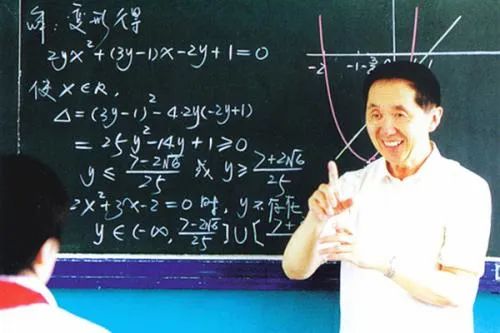 解：变形得
2yx²+(3y-1)x-2y+1=0
使 x∈R,
△=(3y-1)²-4·2y(-2y+1)
=25y²-14y+1≥0
y≤(7-2√6)/25 或 y≥(7+2√6)/25
2x²+3x-2=0时, y不存在
y∈(-∞, (7-2√6)/25]∪[7+
-2 -1 1